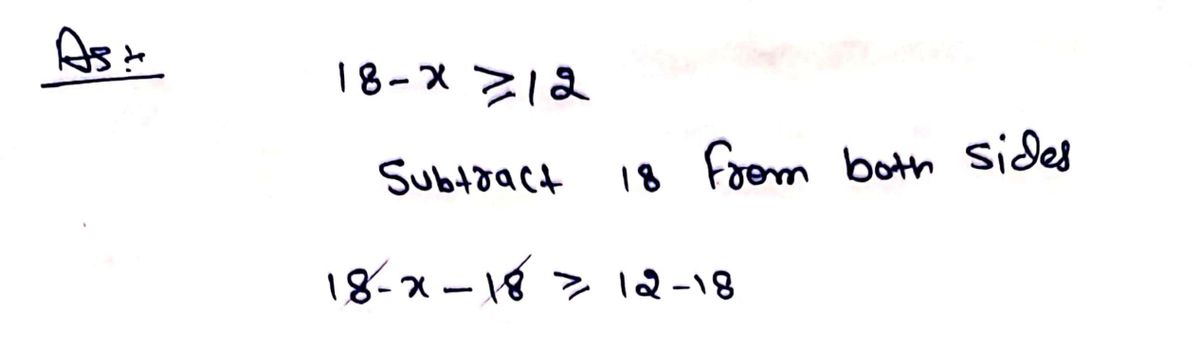 As:-
18-x ≥12
Subtract 18 from both sides
18-x-18 ≥ 12-18